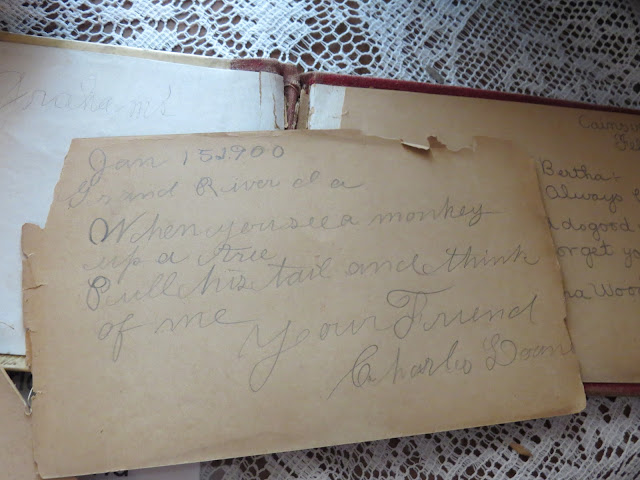 Graham's
Jan 15 1900
Grand River Ia
When you see a monkey
up a tree
Pull his tail and think
of me
Your Friend
Charles Doan
Bertha:
Always
do good
forget